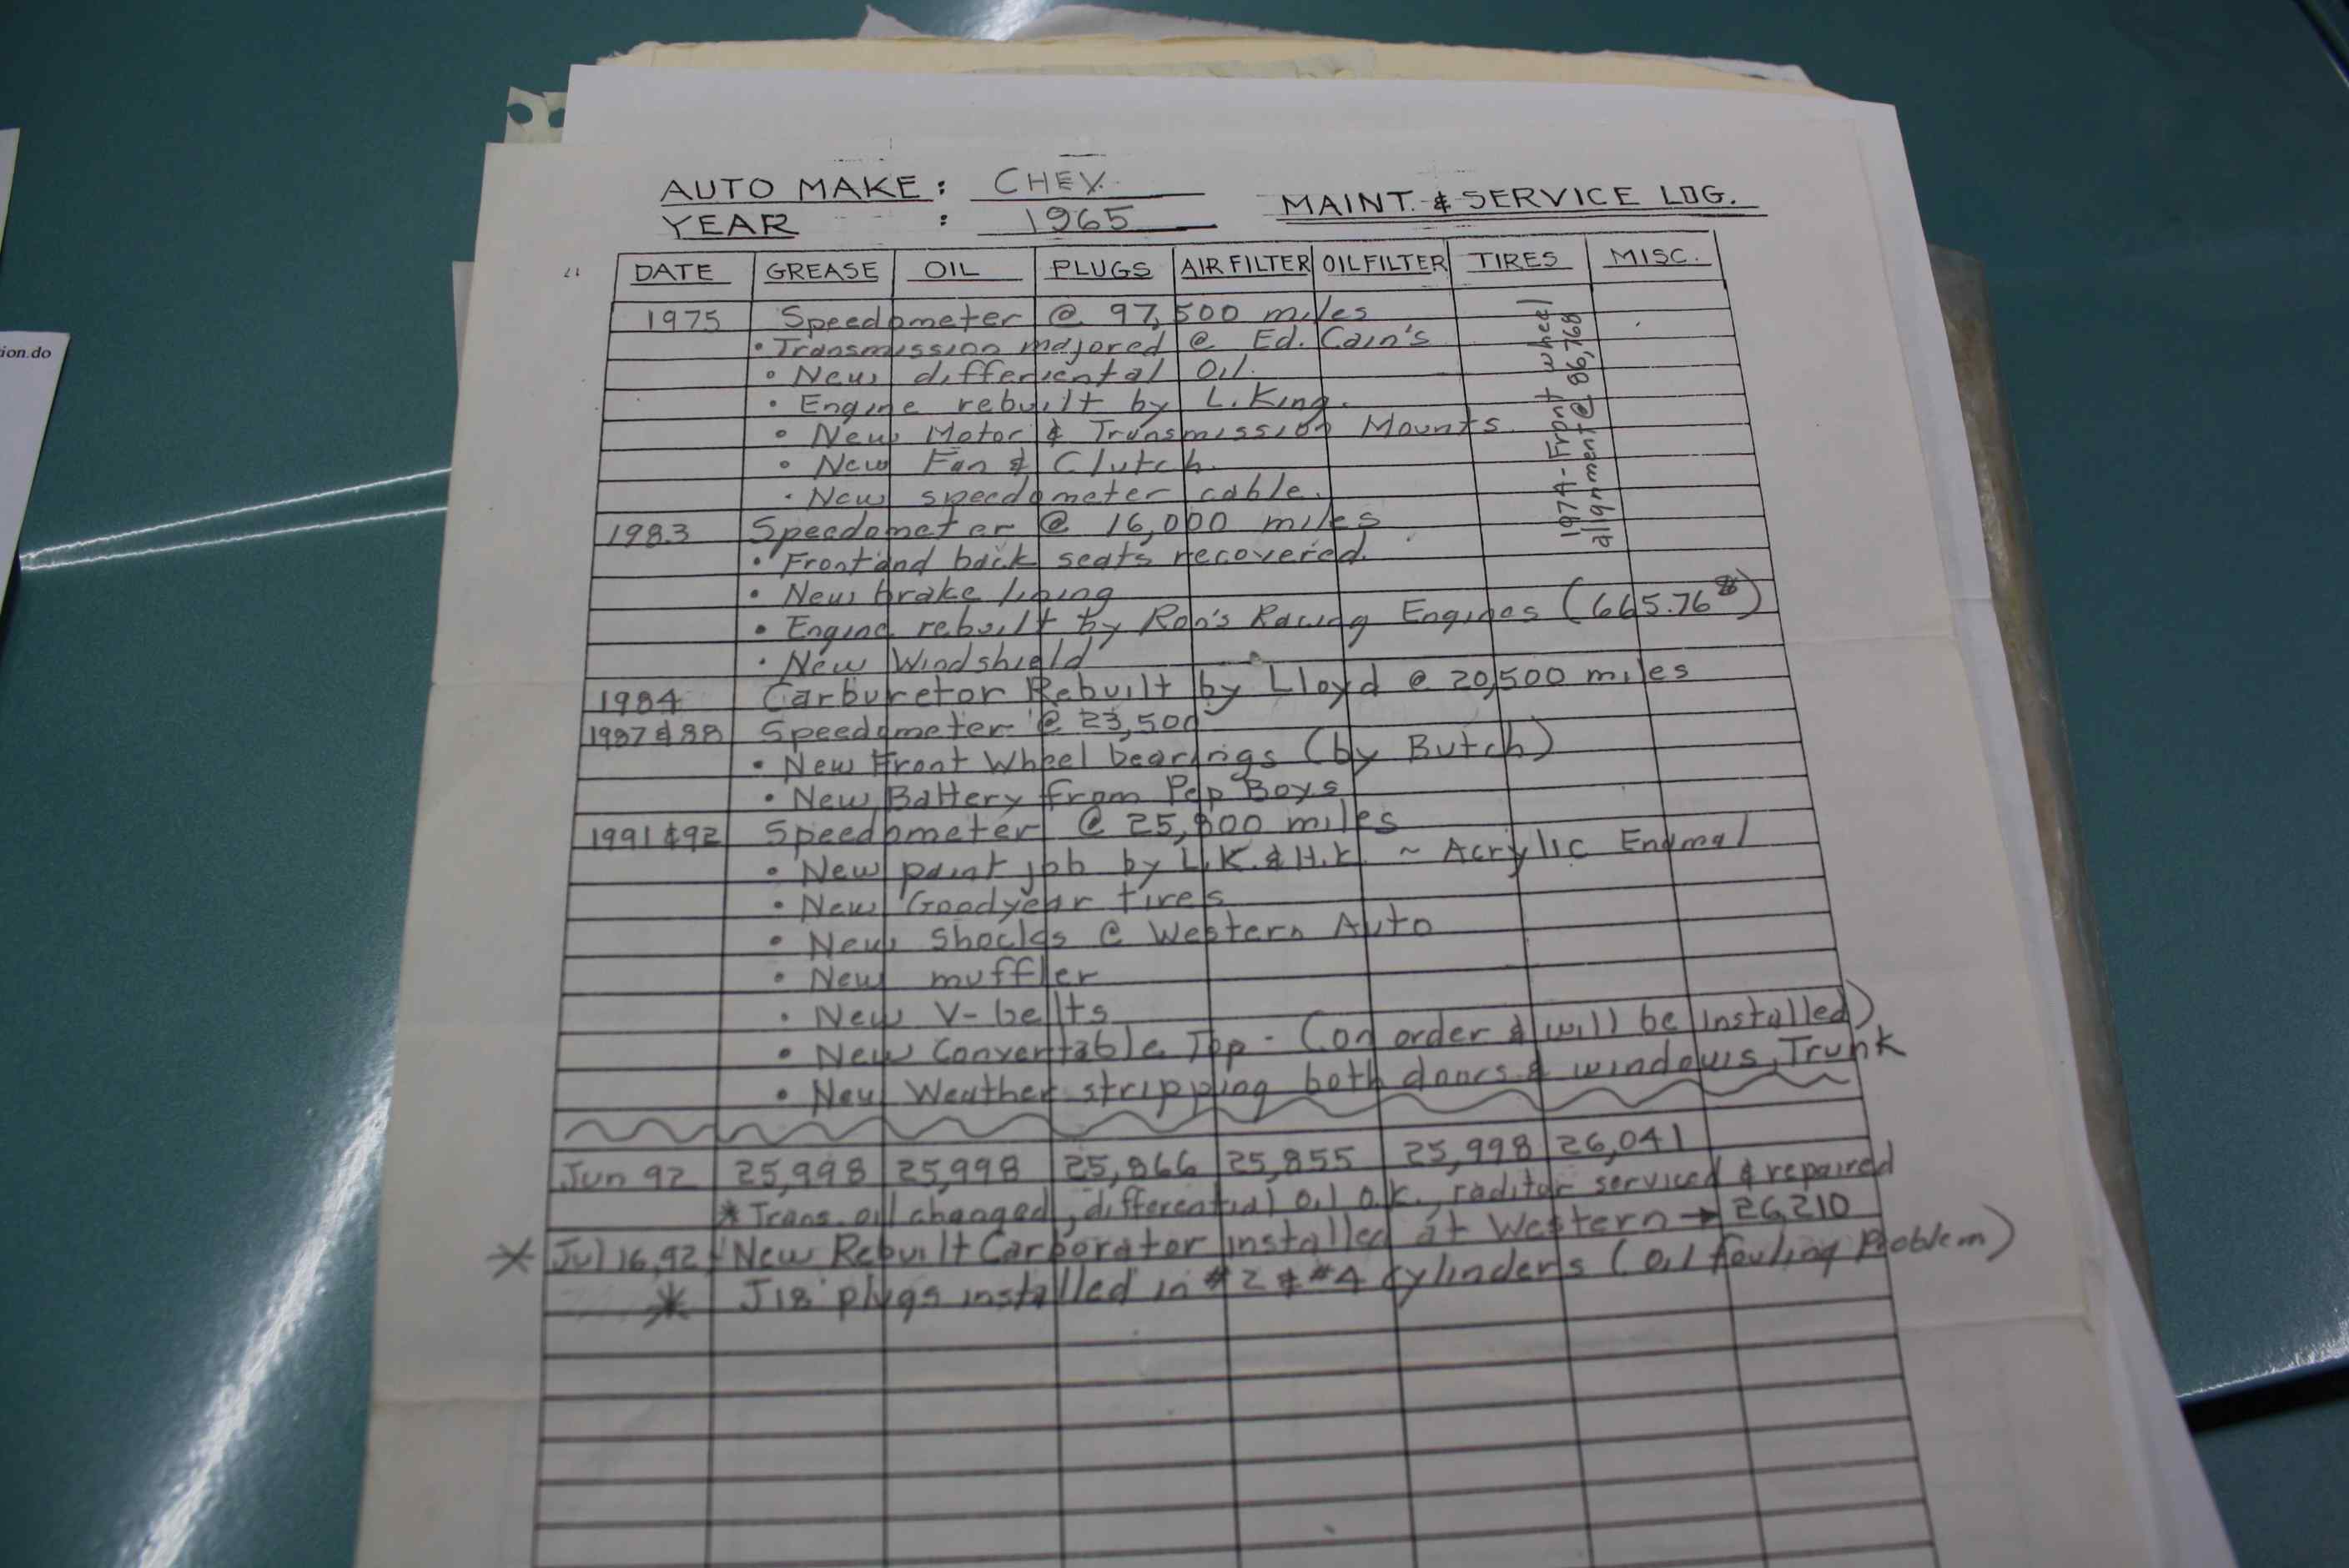 ion.do
AUTO MAKE : CHEV.
YEAR : 1965
MAINT. & SERVICE LOG.
DATE GREASE OIL PLUGS AIR FILTER OIL FILTER TIRES MISC.
1975 Speedometer @ 97,500 miles
• Transmission majored @ Ed. Cain's
• New differiental Oil.
• Engine rebuilt by L. King.
• New Motor & Transmission Mounts.
• New Fan & Clutch.
• New speedometer cable.
1974 - Front wheel
allignment @ 86,768
1983 Speedometer @ 16,000 miles
• Front and back seats recovered.
• New brake lining
• Engine rebuilt by Ron's Racing Engines (665.76)
• New Windshield
1984 Carburetor Rebuilt by Lloyd @ 20,500 miles
1987 & 88 Speedometer @ 23,500
• New Front Wheel bearings (by Butch)
• New Battery from Pep Boys
1991 & 92 Speedometer @ 25,800 miles
• New paint job by L.K. & H.K. ~ Acrylic Enamal
• New Goodyear tires
• New Shocks @ Western Auto
• New muffler
• New V-belts
• New Convertable Top - (on order & will be installed)
• New Weather stripping both doors & windows, Trunk
Jun 92 25,998 25,998 25,866 25,855 25,998 26,041
* Trans. oil changed, differential oil o.k., raditor serviced & repaired
* Jul 16, 92 New Rebuilt Carborator installed at Western → 26,210
* J18 plugs installed in #2 & #4 cylinders (oil fouling Problem)